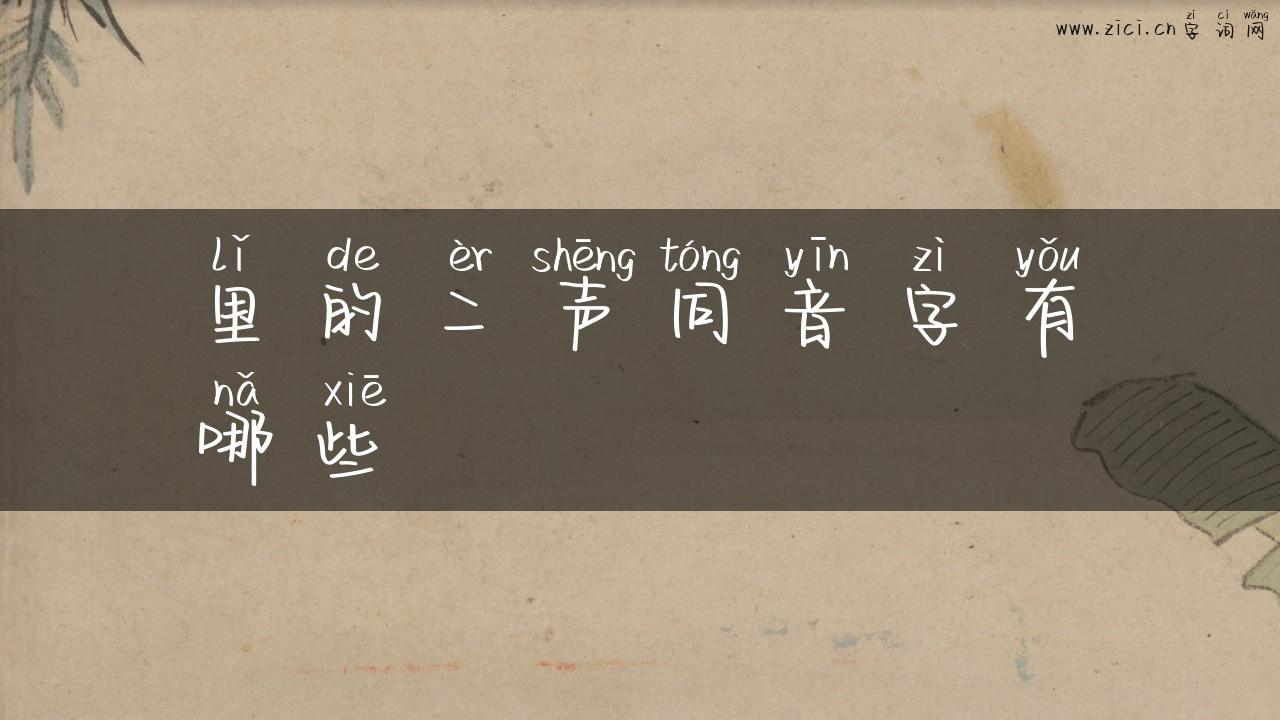 zì cí wǎng
www.zici.cn 字词网
lǐ de èr shēng tóng yīn zì yǒu
里的二声同音字有
nǎ xiē
哪些